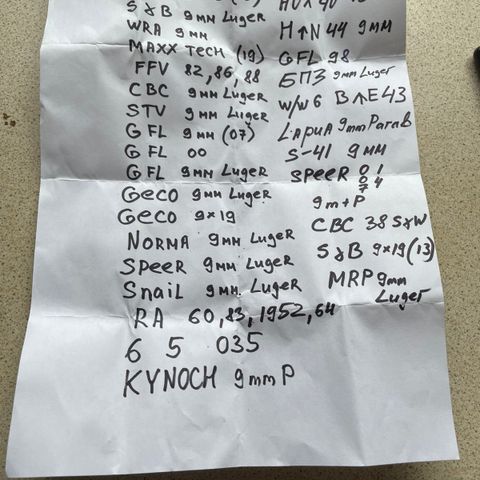 S&B 9мм LugeR
WRA 9мм
MAXX TECH (19)
FFV 82, 86, 88
CBC 9мм LugeR
STV 9мм LugeR
GFL 9мм (07)
GFL 00
GFL 9мм LugeR
Geco 9мм LugeR
Geco 9x19
NORMA 9мм LugeR
SPeeR 9мм LugeR
SnaiL 9мм LugeR
RA 60, 83, 1952, 64
6 5 035
KYNOCH 9mm P
H↑N 44 9мм
GFL 98
БПЗ 9мм LugeT
W/W 6 B↑E43
LApuA 9mm ParaB
S-41 9мм
SPeeR
9m+P
CBC 38 S&W
S&B 9x19 (13)
MRP 9мм
LugeT